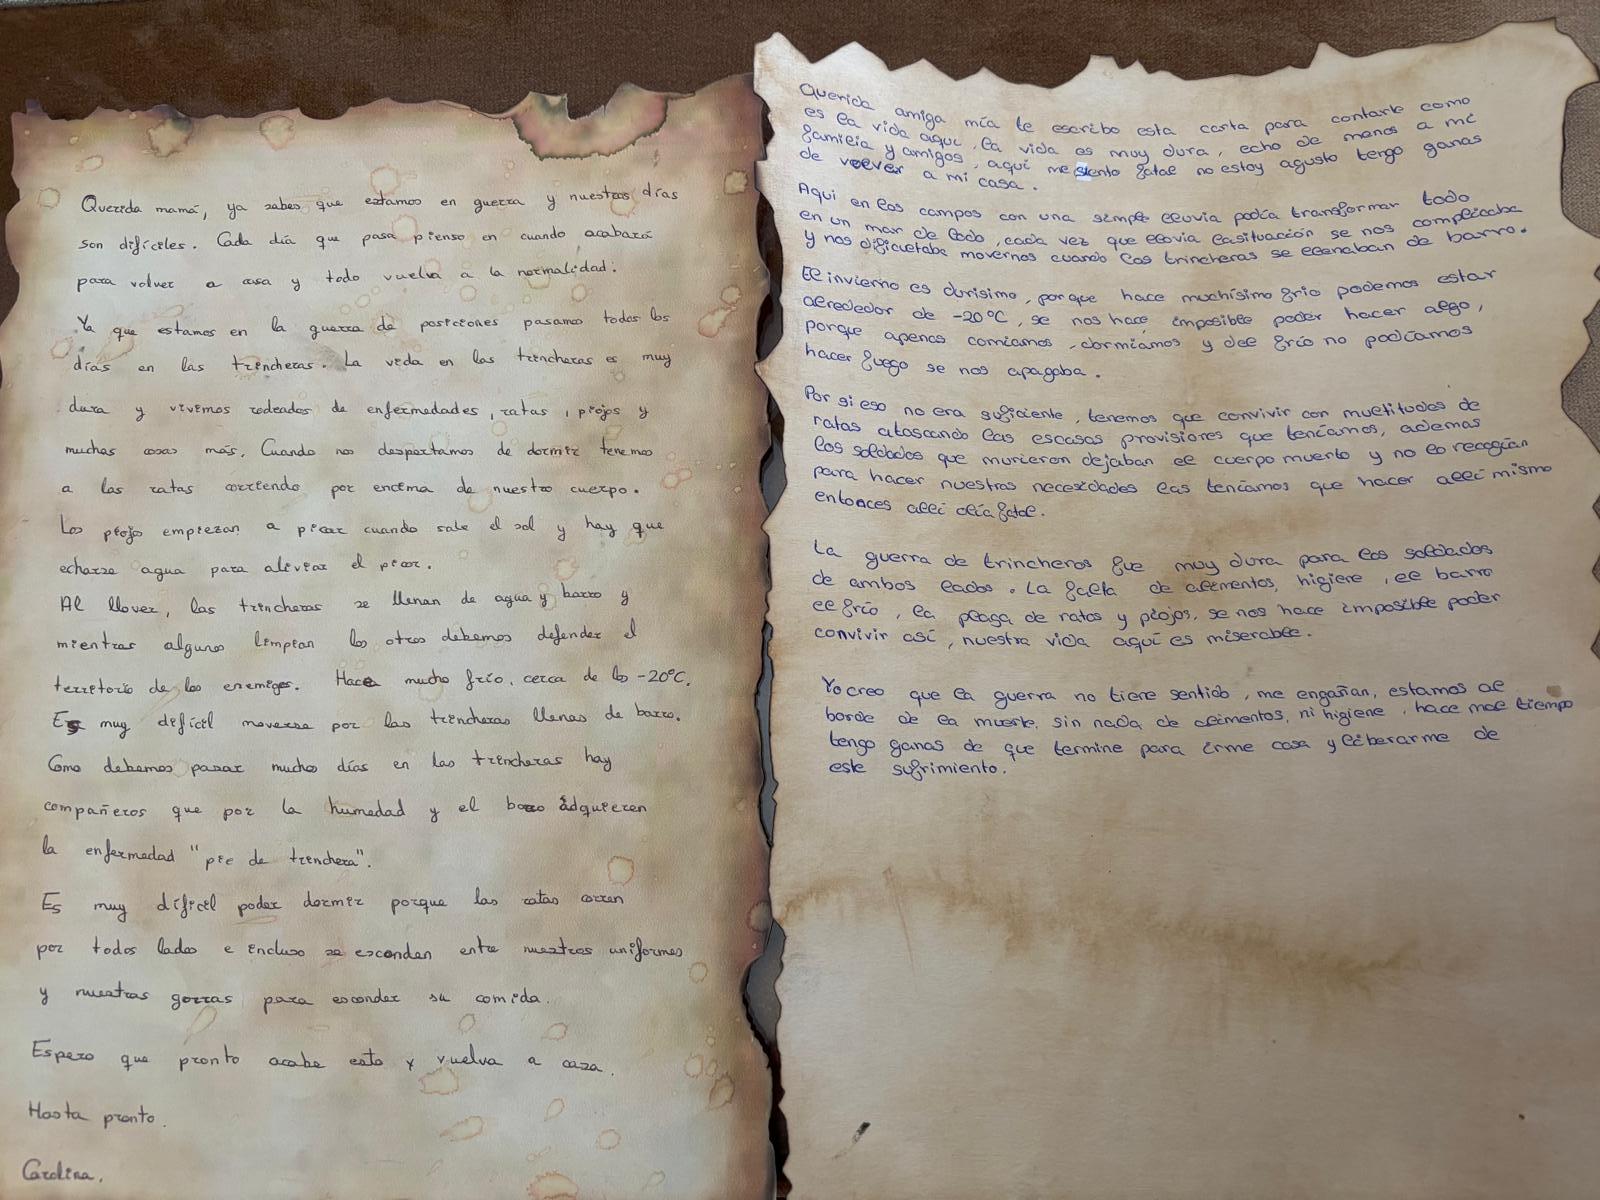 Querida mamá, ya sabes que estamos en guerra y nuestros días
son difíciles. Cada día que pasa pienso en cuando acabará
para volver a casa y todo vuelva a la normalidad.
Ya que estamos en la guerra de posiciones pasamos todos los
días en las trincheras. La vida en las trincheras es muy
dura y vivimos rodeados de enfermedades, ratas, piojos y
muchas cosas más. Cuando nos despertamos de dormir tenemos
a las ratas corriendo por encima de nuestro cuerpo.
Los piojos empiezan a picar cuando sale el sol y hay que
echarse agua para aliviar el picor.
Al llover, las trincheras se llenan de agua y barro y
mientras algunos limpian los otros debemos defender el
territorio de los enemigos. Hace mucho frío, cerca de los -20ºC.
Es muy difícil moverse por las trincheras llenas de barro.
Como debemos pasar muchos días en las trincheras hay
compañeros que por la humedad y el barro adquieren
la enfermedad "pie de trinchera".
Es muy difícil poder dormir porque las ratas corren
por todos lados e incluso se esconden entre nuestros uniformes
y nuestras gorras para esconder su comida.
Espero que pronto acabe esto y vuelva a casa.
Hasta pronto.
Carolina.
Querida amiga mía te escribo esta carta para contarte como
es la vida aquí, la vida es muy dura, echo de menos a mi
familia y amigos, aquí me siento fatal no estoy agusto tengo ganas
de volver a mi casa.
Aqui en los campos con una simple lluvia podía transformar todo
en un mar de lodo, cada vez que llovia la situación se nos complicaba
y nos dificultaba movernos cuando las trincheras se llenaban de barro.
El invierno es durisimo, porque hace muchísimo frio podemos estar
alrededor de -20ºC, se nos hace imposible poder hacer algo,
porque apenas comiamos, dormíamos y del frío no podíamos
hacer fuego se nos apagaba.
Por si eso no era suficiente, tenemos que convivir con multitudes de
ratas atascando las escasas provisiones que teníamos, ademas
los soldados que murieron dejaban el cuerpo muerto y no lo recogían
para hacer nuestras necesidades las teníamos que hacer allí mismo
entonces allí olía fatal.
La guerra de trincheros fue muy dura para los soldados
de ambos lados. La falta de alimentos, higiene, el barro
el frío, la plaga de ratas y piojos, se nos hace imposible poder
convivir así, nuestra vida aquí es miserable.
Yo creo que la guerra no tiene sentido, me engañan, estamos al
borde de la muerte, sin nada de alimentos, ni higiene, hace mal tiempo
tengo ganas de que termine para irme casa y liberarme de
este sufrimiento.